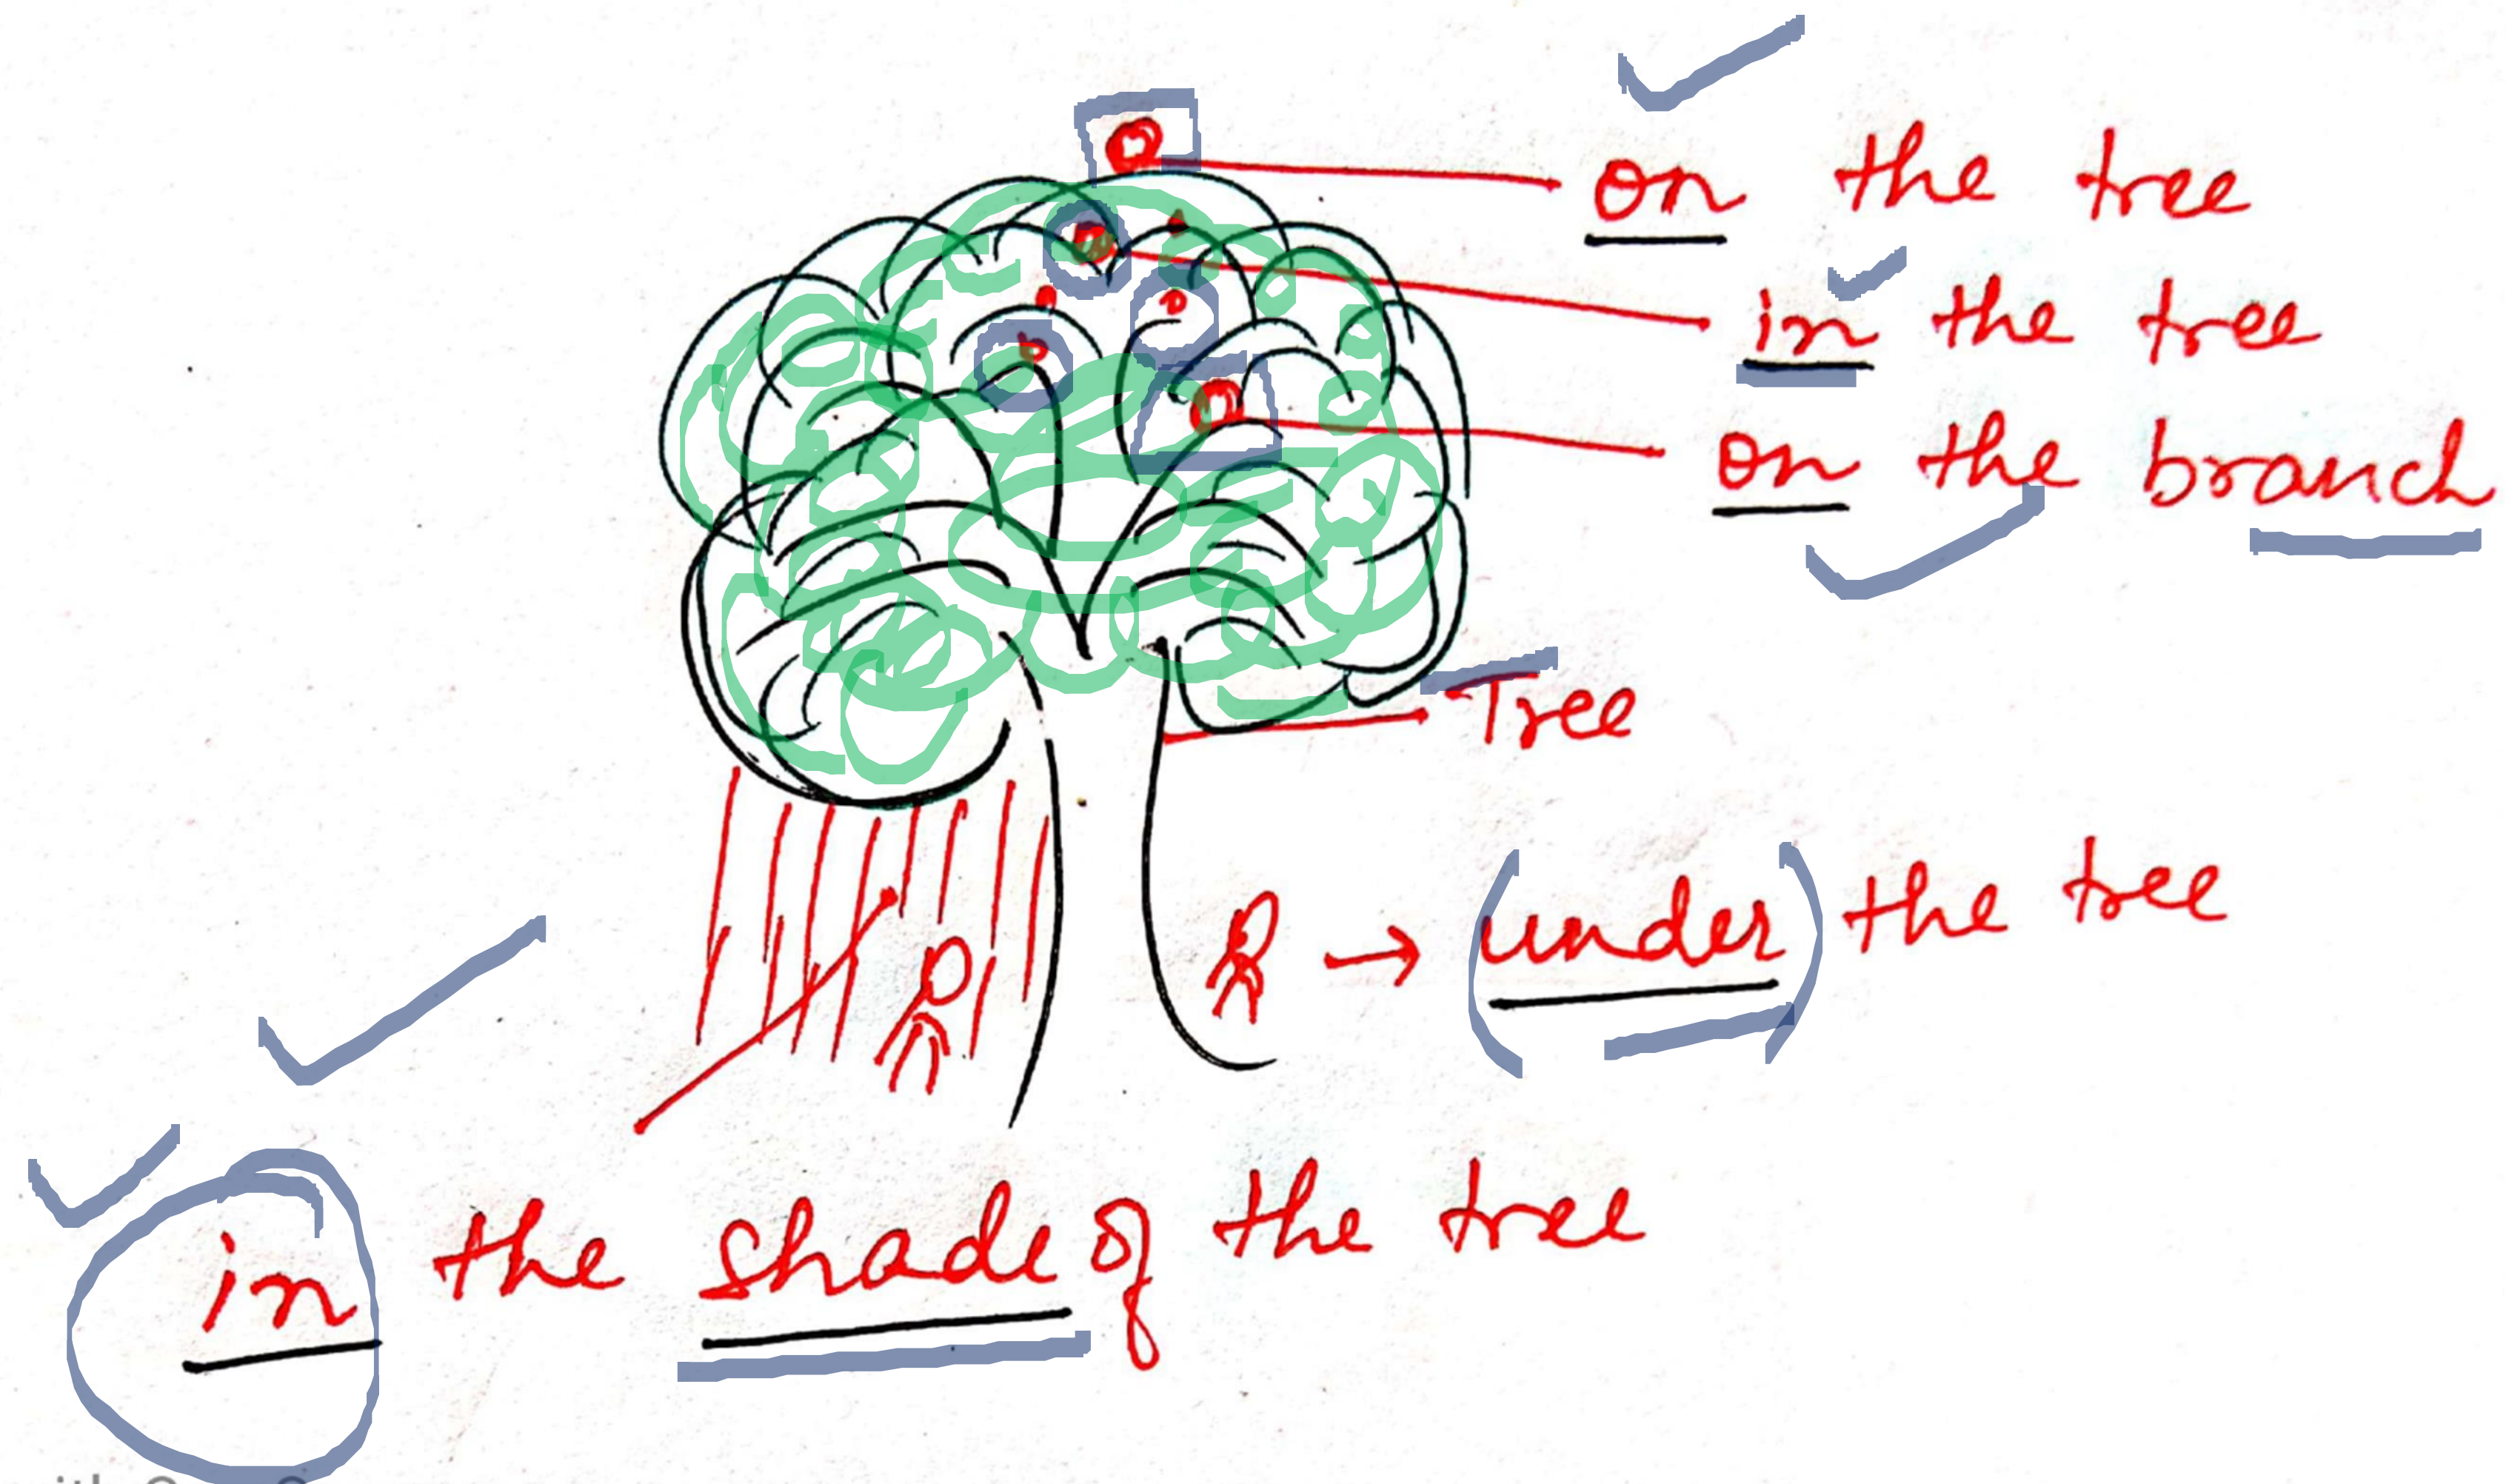 on the tree
in the tree
on the branch
Tree
under the tree
in the shade of the tree